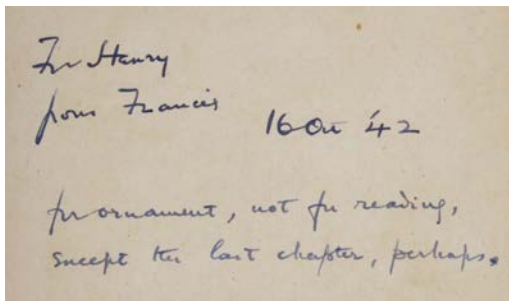 For Henry
from Francis
16 Oct '42
for ornament, not for reading,
except the last chapter, perhaps.